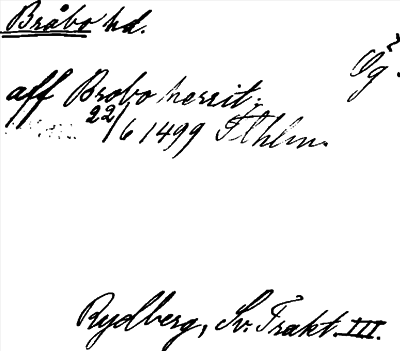 Bråbo hd.
Ög.
aff Brobo herrit.
22/6 1499 Sthlm.
Rydberg, Sv. Trakt. III.